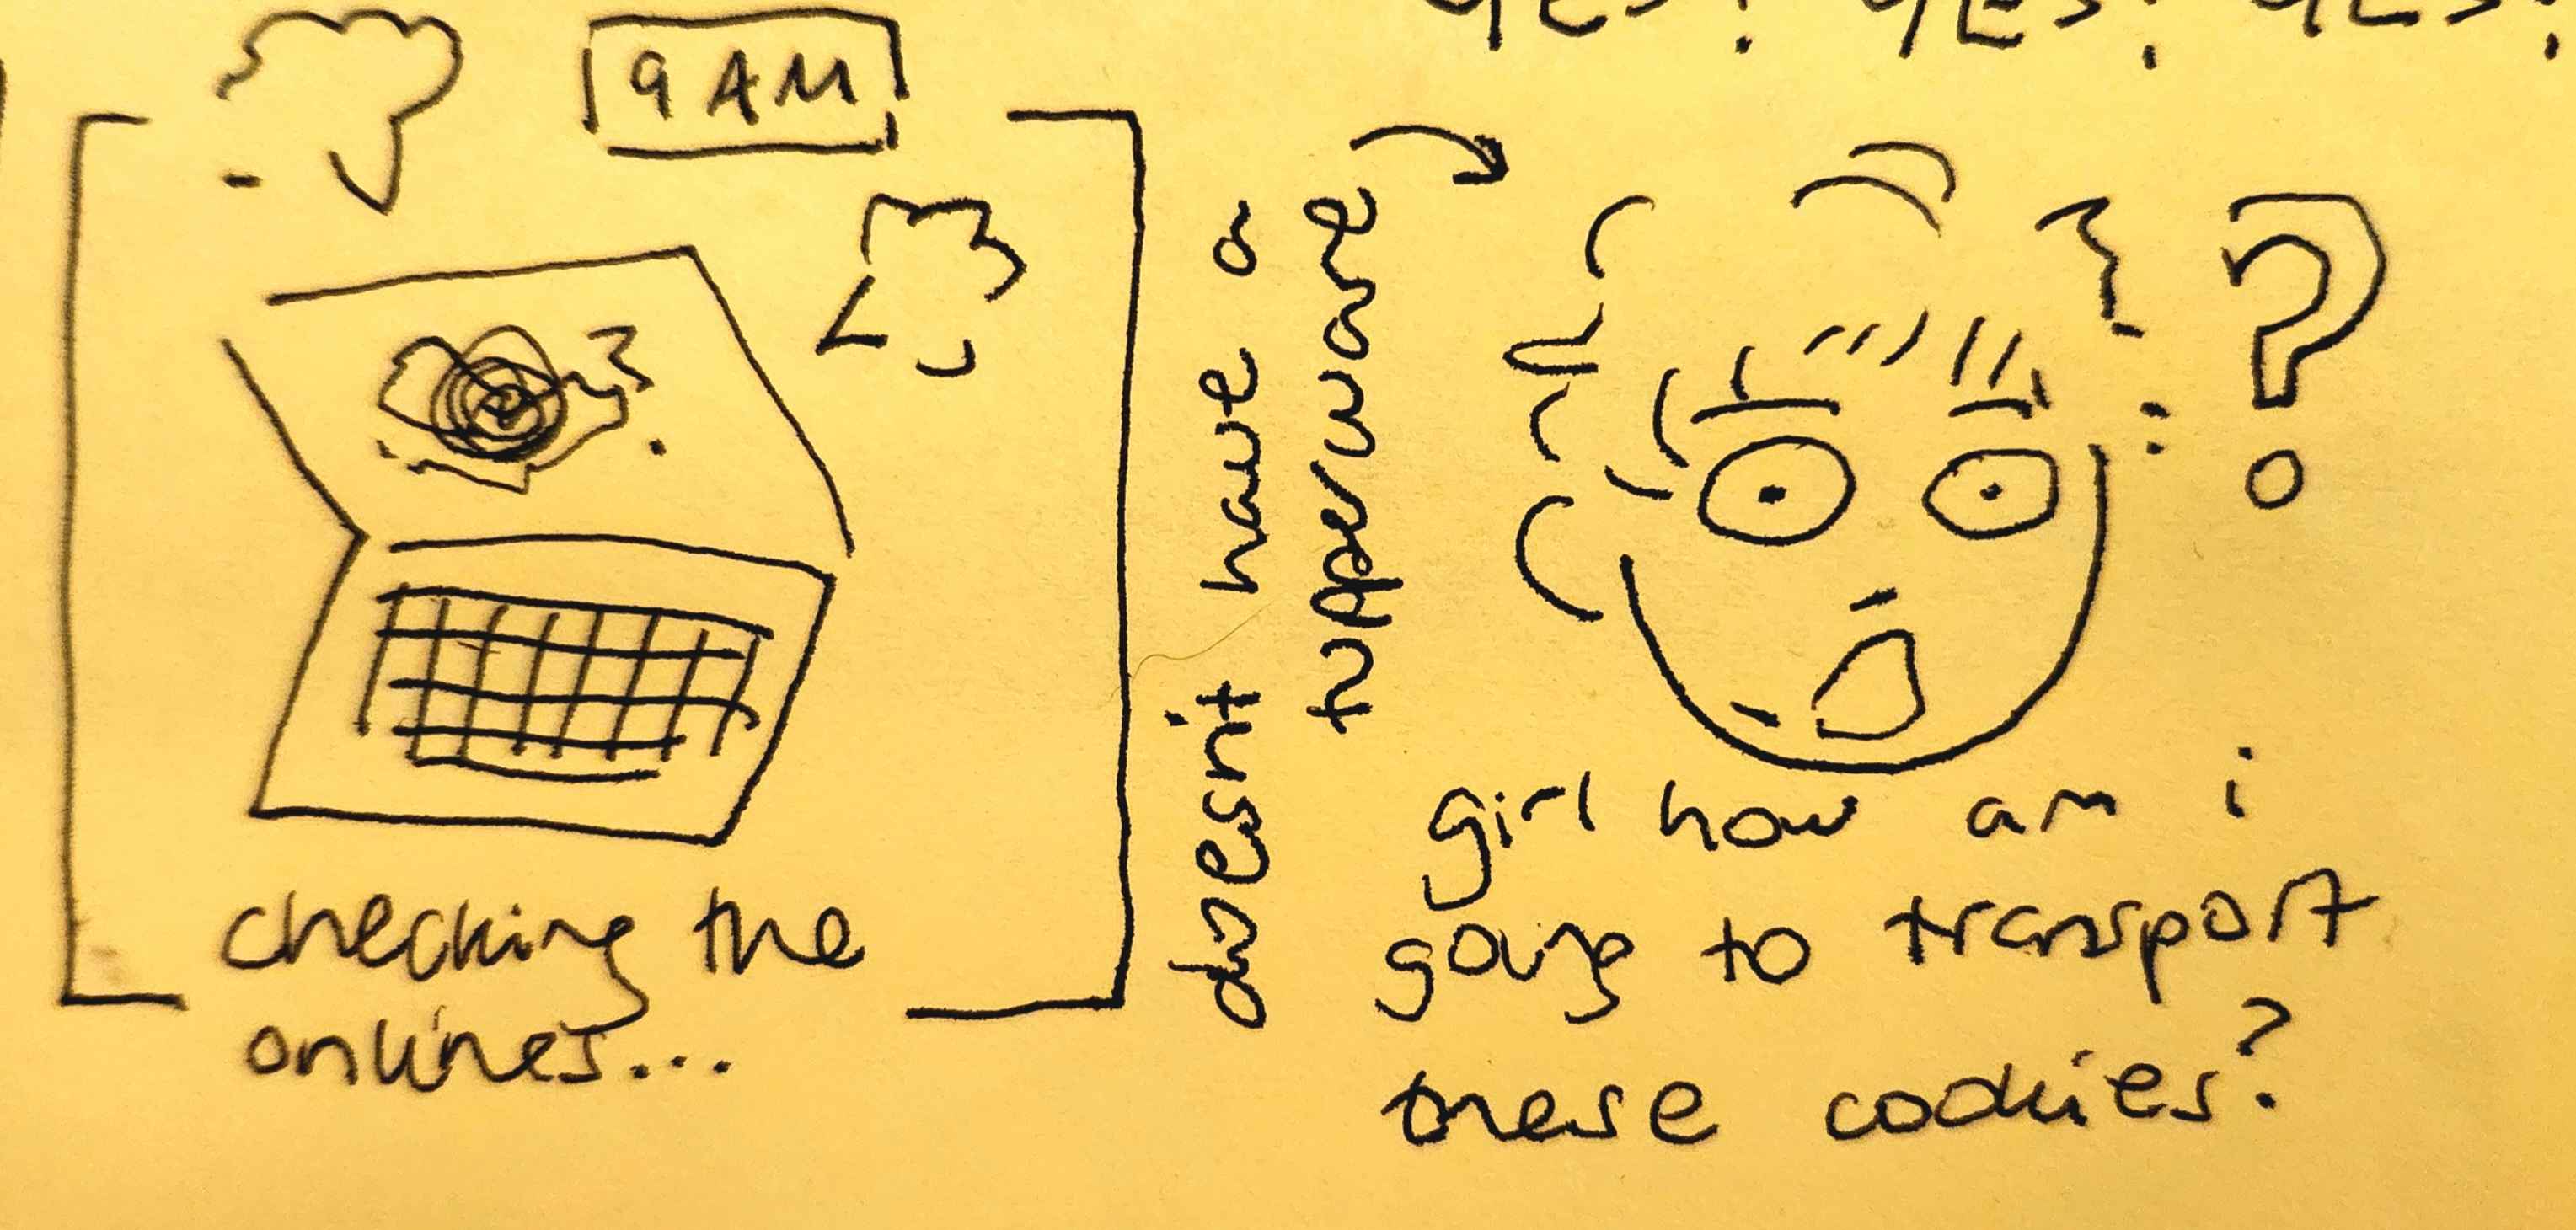 YES! YES! YES!
9 AM
checking the
onlines...
doesn't have a
tupperware
?
girl how am i
going to transport
these cookies?